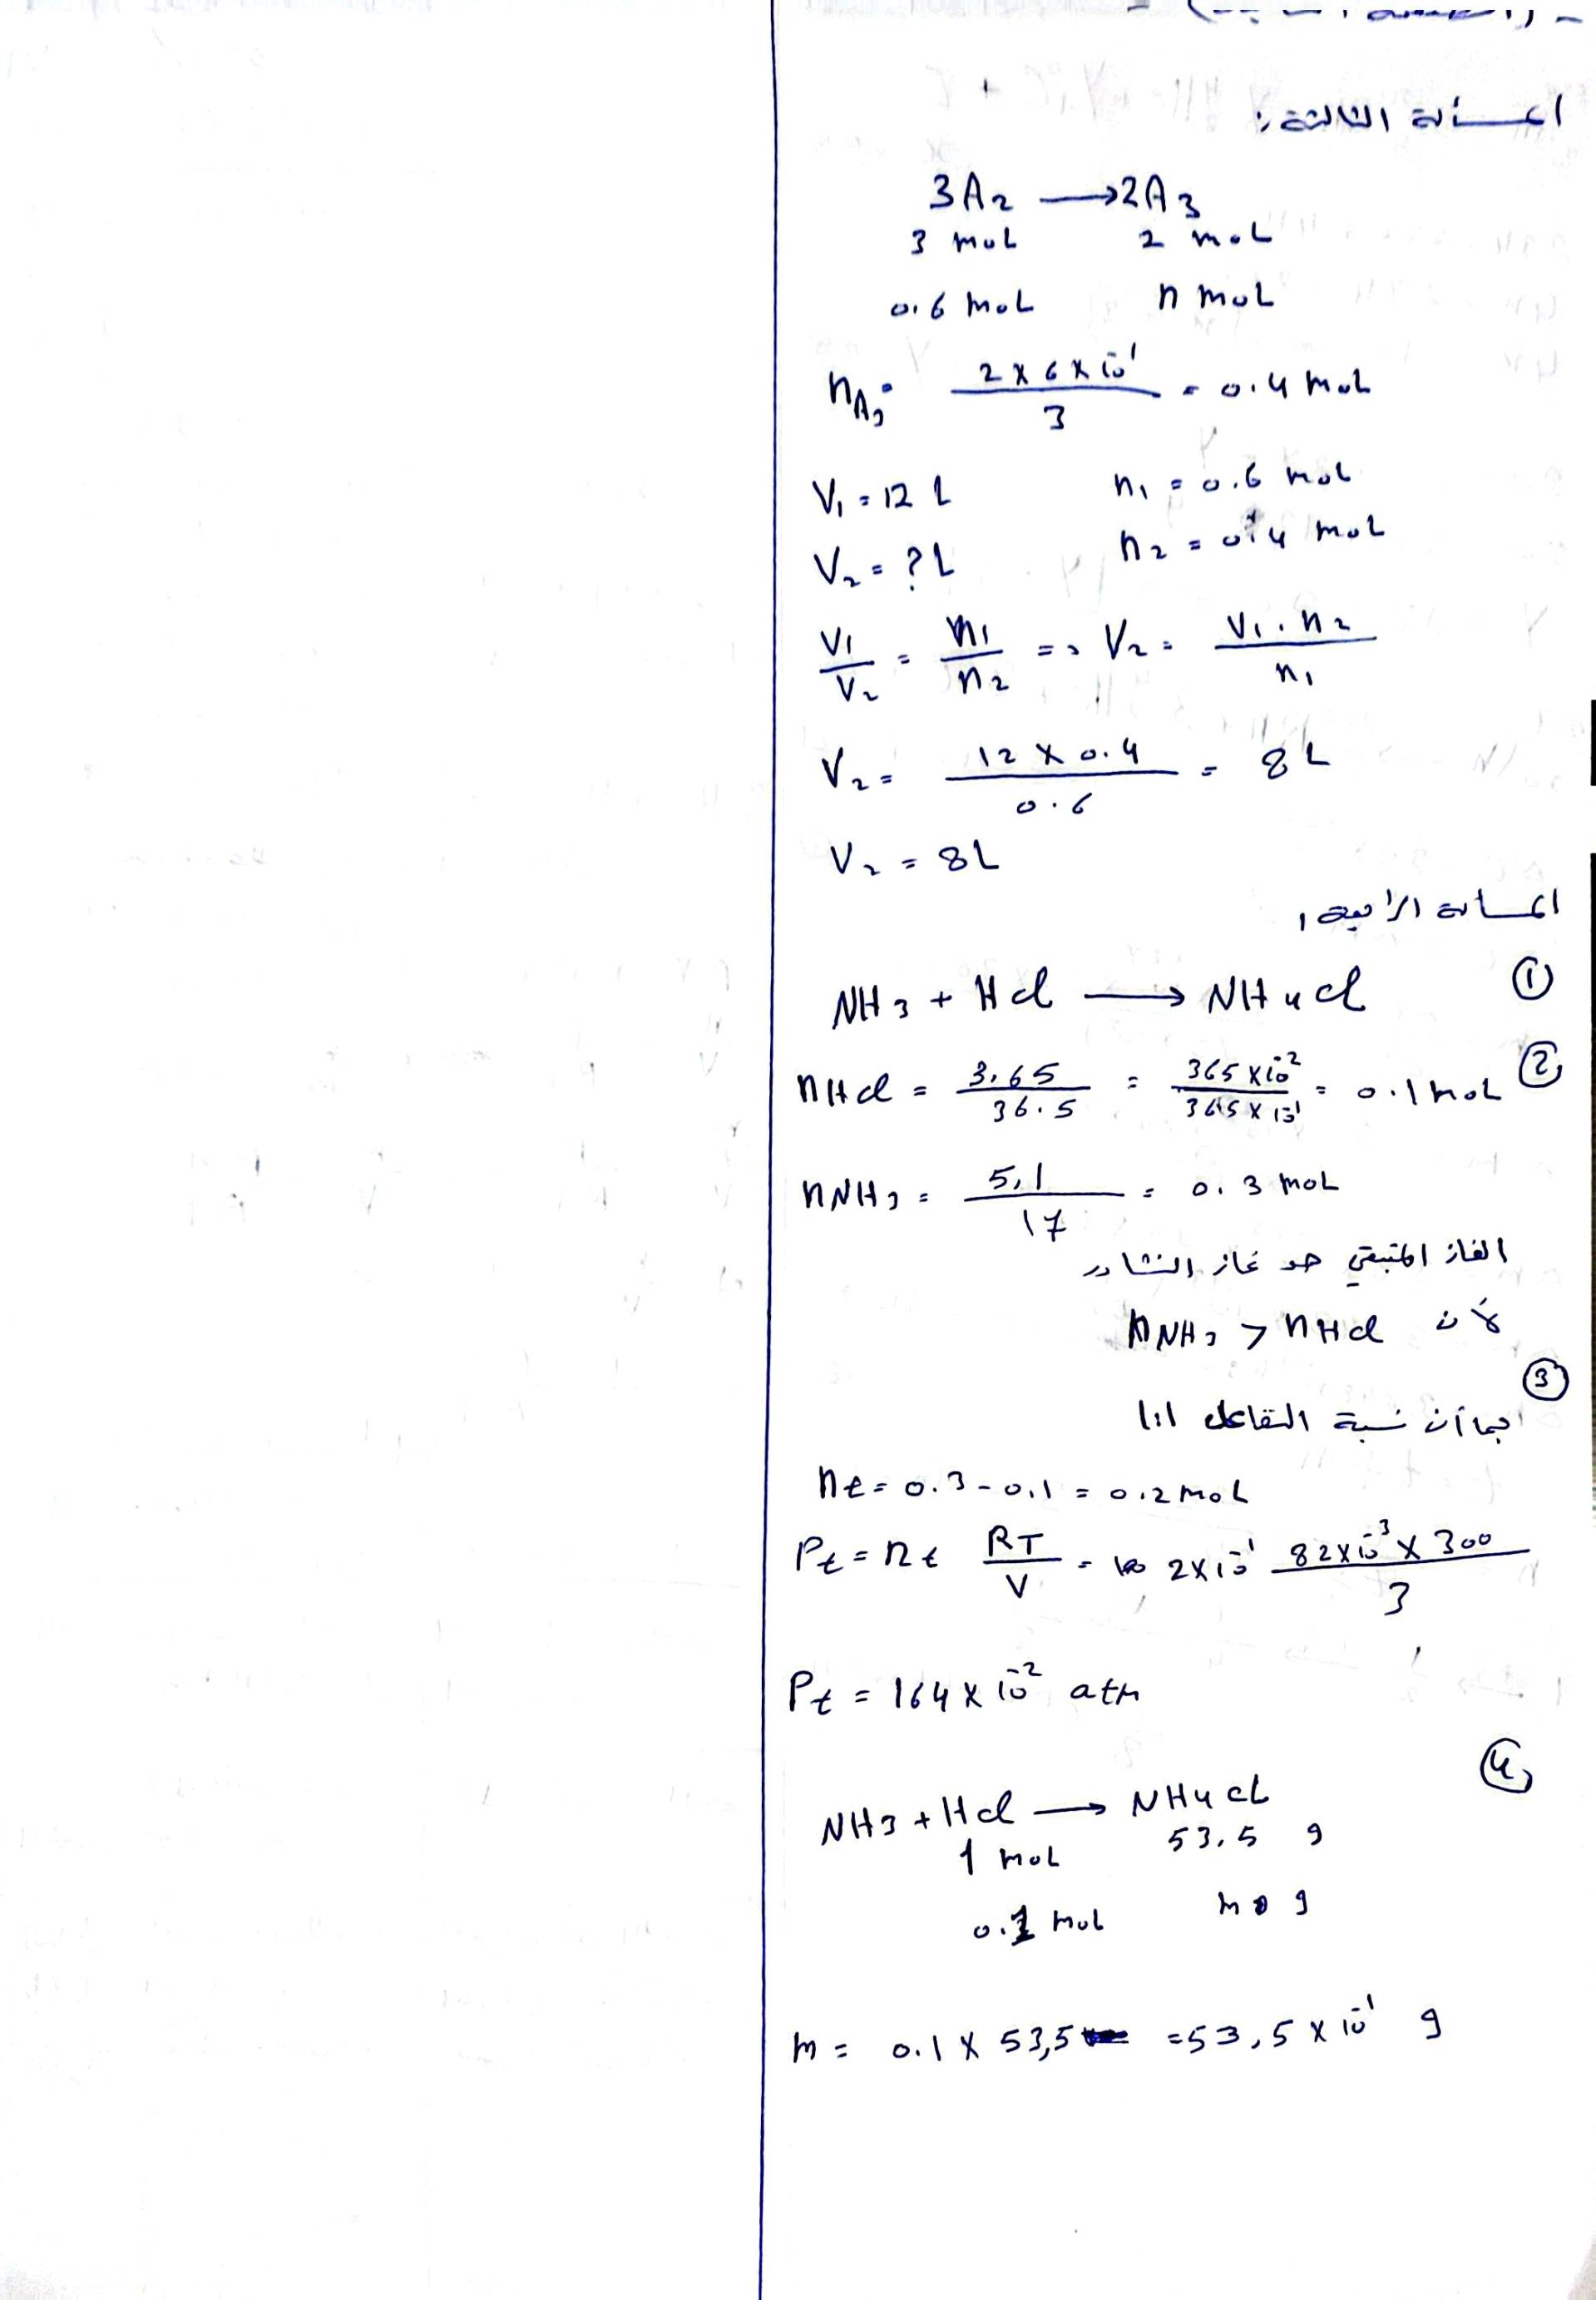 المسألة الثالثة:
3A₂ ⟶ 2A₃
3 mol 2 mol
0.6 mol n mol
nA₃ = (2 × 6 × 10⁻¹) / 3 = 0.4 mol
V₁ = 12 L n₁ = 0.6 mol
V₂ = ? L n₂ = 0.4 mol
V₁/V₂ = n₁/n₂ => V₂ = (V₁ . n₂) / n₁
V₂ = (12 × 0.4) / 0.6 = 8 L
V₂ = 8 L
المسألة الرابعة:
NH₃ + HCl ⟶ NH₄Cl ①
nHCl = 3.65 / 36.5 = (365 × 10⁻²) / (365 × 10⁻¹) = 0.1 mol ②
nNH₃ = 5,1 / 17 = 0.3 mol
الغاز المتبقي هو غاز النشادر
لأن nNH₃ > nHCl
③
بما أن نسبة التفاعل 1:1
nt = 0.3 - 0.1 = 0.2 mol
Pt = nt RT/V = 2×10⁻¹ (82×10⁻³ × 300) / 3
Pt = 164 × 10⁻² atm
④
NH₃ + HCl ⟶ NH₄Cl
1 mol 53,5 g
0.1 mol m g
m = 0.1 × 53,5 = 53,5 × 10⁻¹ g